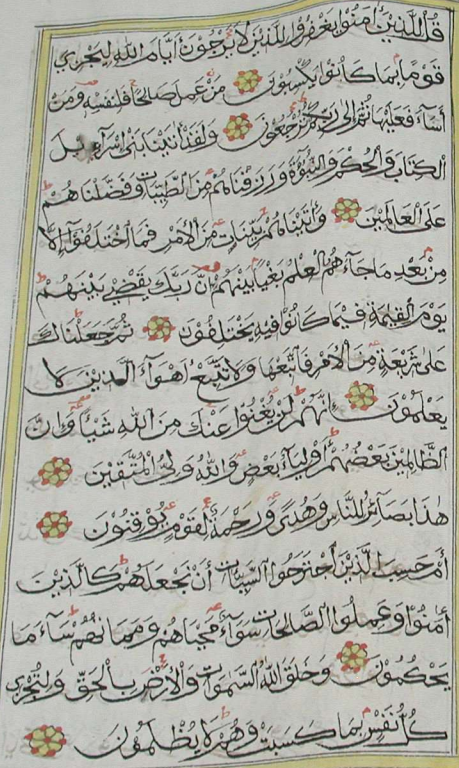 قُل لِّلَّذِينَ اٰمَنُوا يَغْفِرُوا لِلَّذِينَ لَا يَرْجُونَ أَيَّامَ اللّٰهِ لِيَجْزِيَ
قَوْمًا بِمَا كَانُوا يَكْسِبُونَ مَنْ عَمِلَ صَالِحًا فَلِنَفْسِهِ وَمَنْ
أَسَآءَ فَعَلَيْهَا ثُمَّ إِلَى رَبِّكُمْ تُرْجَعُونَ وَلَقَدْ اٰتَيْنَا بَنِي إِسْرَآءِيلَ
الْكِتَابَ وَالْحُكْمَ وَالنُّبُوَّةَ وَرَزَقْنَاهُمْ مِنَ الطَّيِّبَاتِ وَفَضَّلْنَاهُمْ
عَلَى الْعَالَمِينَ وَاٰتَيْنَاهُمْ بَيِّنَاتٍ مِنَ الْأَمْرِ فَمَا اخْتَلَفُوا إِلَّا
مِنْ بَعْدِ مَا جَآءَهُمُ الْعِلْمُ بَغْيًا بَيْنَهُمْ إِنَّ رَبَّكَ يَقْضِي بَيْنَهُمْ
يَوْمَ الْقِيٰمَةِ فِيمَا كَانُوا فِيهِ يَخْتَلِفُونَ ثُمَّ جَعَلْنَاكَ
عَلَى شَرِيعَةٍ مِنَ الْأَمْرِ فَاتَّبِعْهَا وَلَا تَتَّبِعْ أَهْوَآءَ الَّذِينَ لَا
يَعْلَمُونَ إِنَّهُمْ لَنْ يُغْنُوا عَنْكَ مِنَ اللّٰهِ شَيْئًا وَإِنَّ
الظَّالِمِينَ بَعْضُهُمْ أَوْلِيَآءُ بَعْضٍ وَاللّٰهُ وَلِيُّ الْمُتَّقِينَ
هٰذَا بَصَآئِرُ لِلنَّاسِ وَهُدًى وَرَحْمَةٌ لِقَوْمٍ يُوقِنُونَ
أَمْ حَسِبَ الَّذِينَ اجْتَرَحُوا السَّيِّئَاتِ أَنْ نَجْعَلَهُمْ كَالَّذِينَ
اٰمَنُوا وَعَمِلُوا الصَّالِحَاتِ سَوَآءً مَحْيَاهُمْ وَمَمَاتُهُمْ سَآءَ مَا
يَحْكُمُونَ وَخَلَقَ اللّٰهُ السَّمٰوَاتِ وَالْأَرْضَ بِالْحَقِّ وَلِتُجْزَى
كُلُّ نَفْسٍ بِمَا كَسَبَتْ وَهُمْ لَا يُظْلَمُونَ